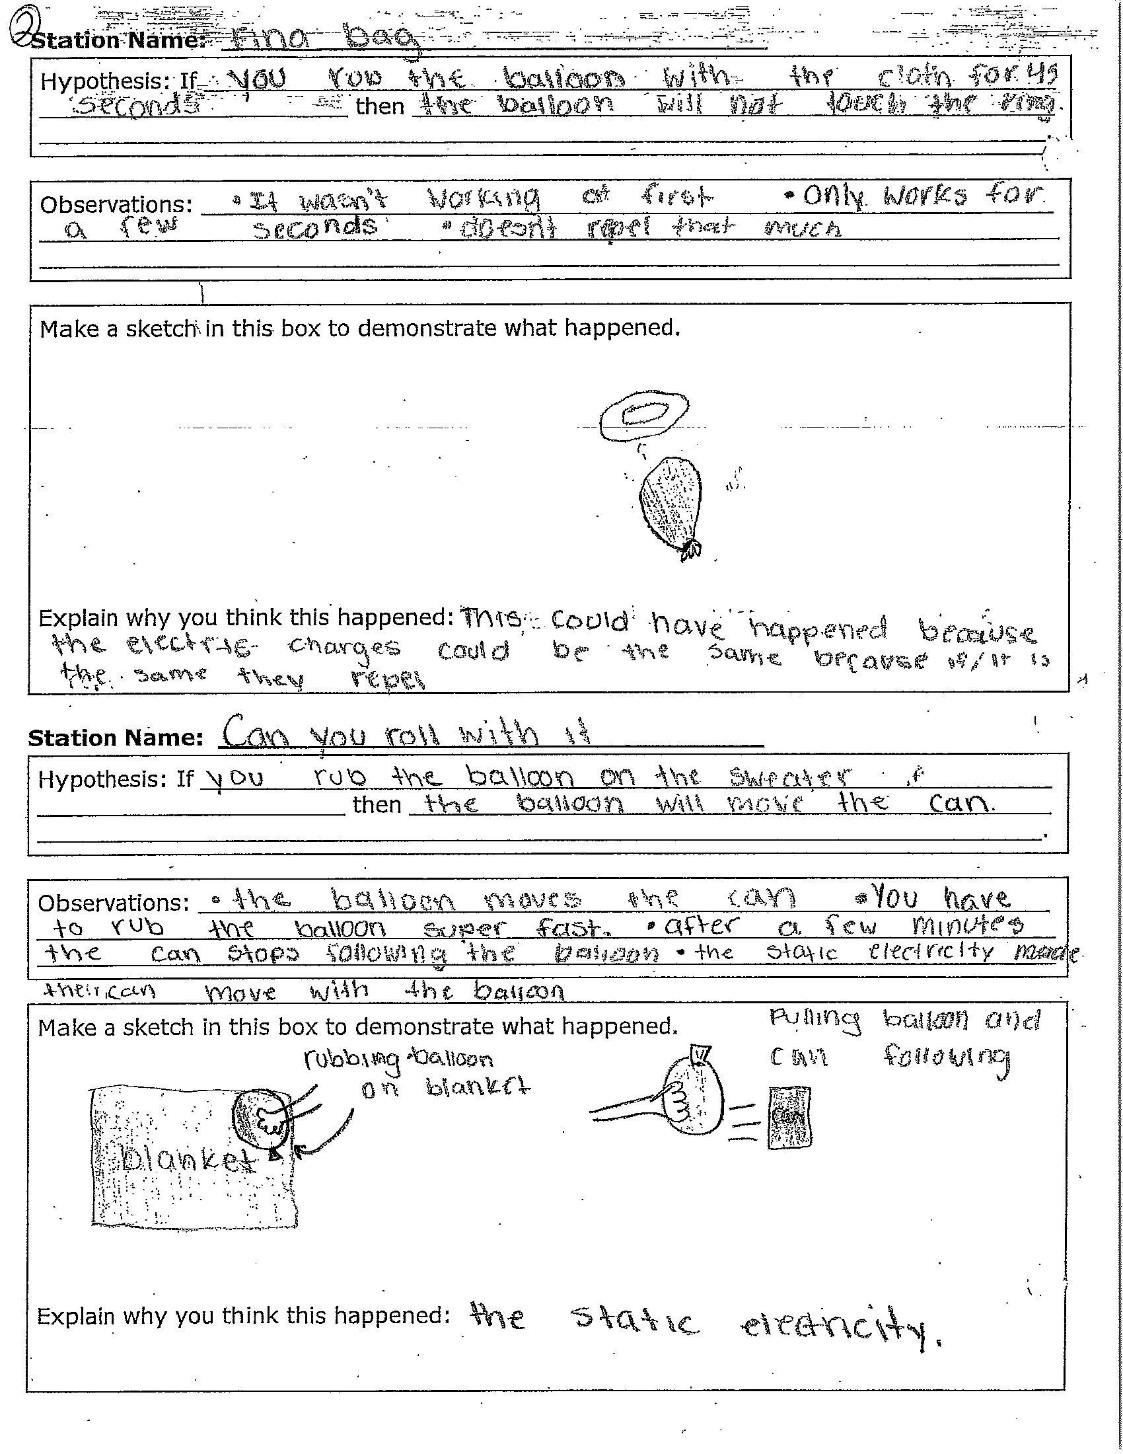 2
Station Name: Ring bag
Hypothesis: If you rub the balloon with the cloth for 45
seconds then the balloon will not touch the ring.
Observations: • It wasn't working at first • Only works for
a few seconds • doesn't repel that much
Make a sketch in this box to demonstrate what happened.
Explain why you think this happened: This could have happened because
the electric charges could be the same because if/it is
the same they repel
Station Name: Can you roll with it
Hypothesis: If you rub the balloon on the sweater
then the balloon will move the can.
Observations: • the balloon moves the can • You have
to rub the balloon super fast. • after a few minutes
the can stops following the balloon • the static electricity made
the can move with the balloon
Make a sketch in this box to demonstrate what happened.
Pulling balloon and
can following
rubbing balloon
on blanket
blanket
can
Explain why you think this happened: the static electricity.